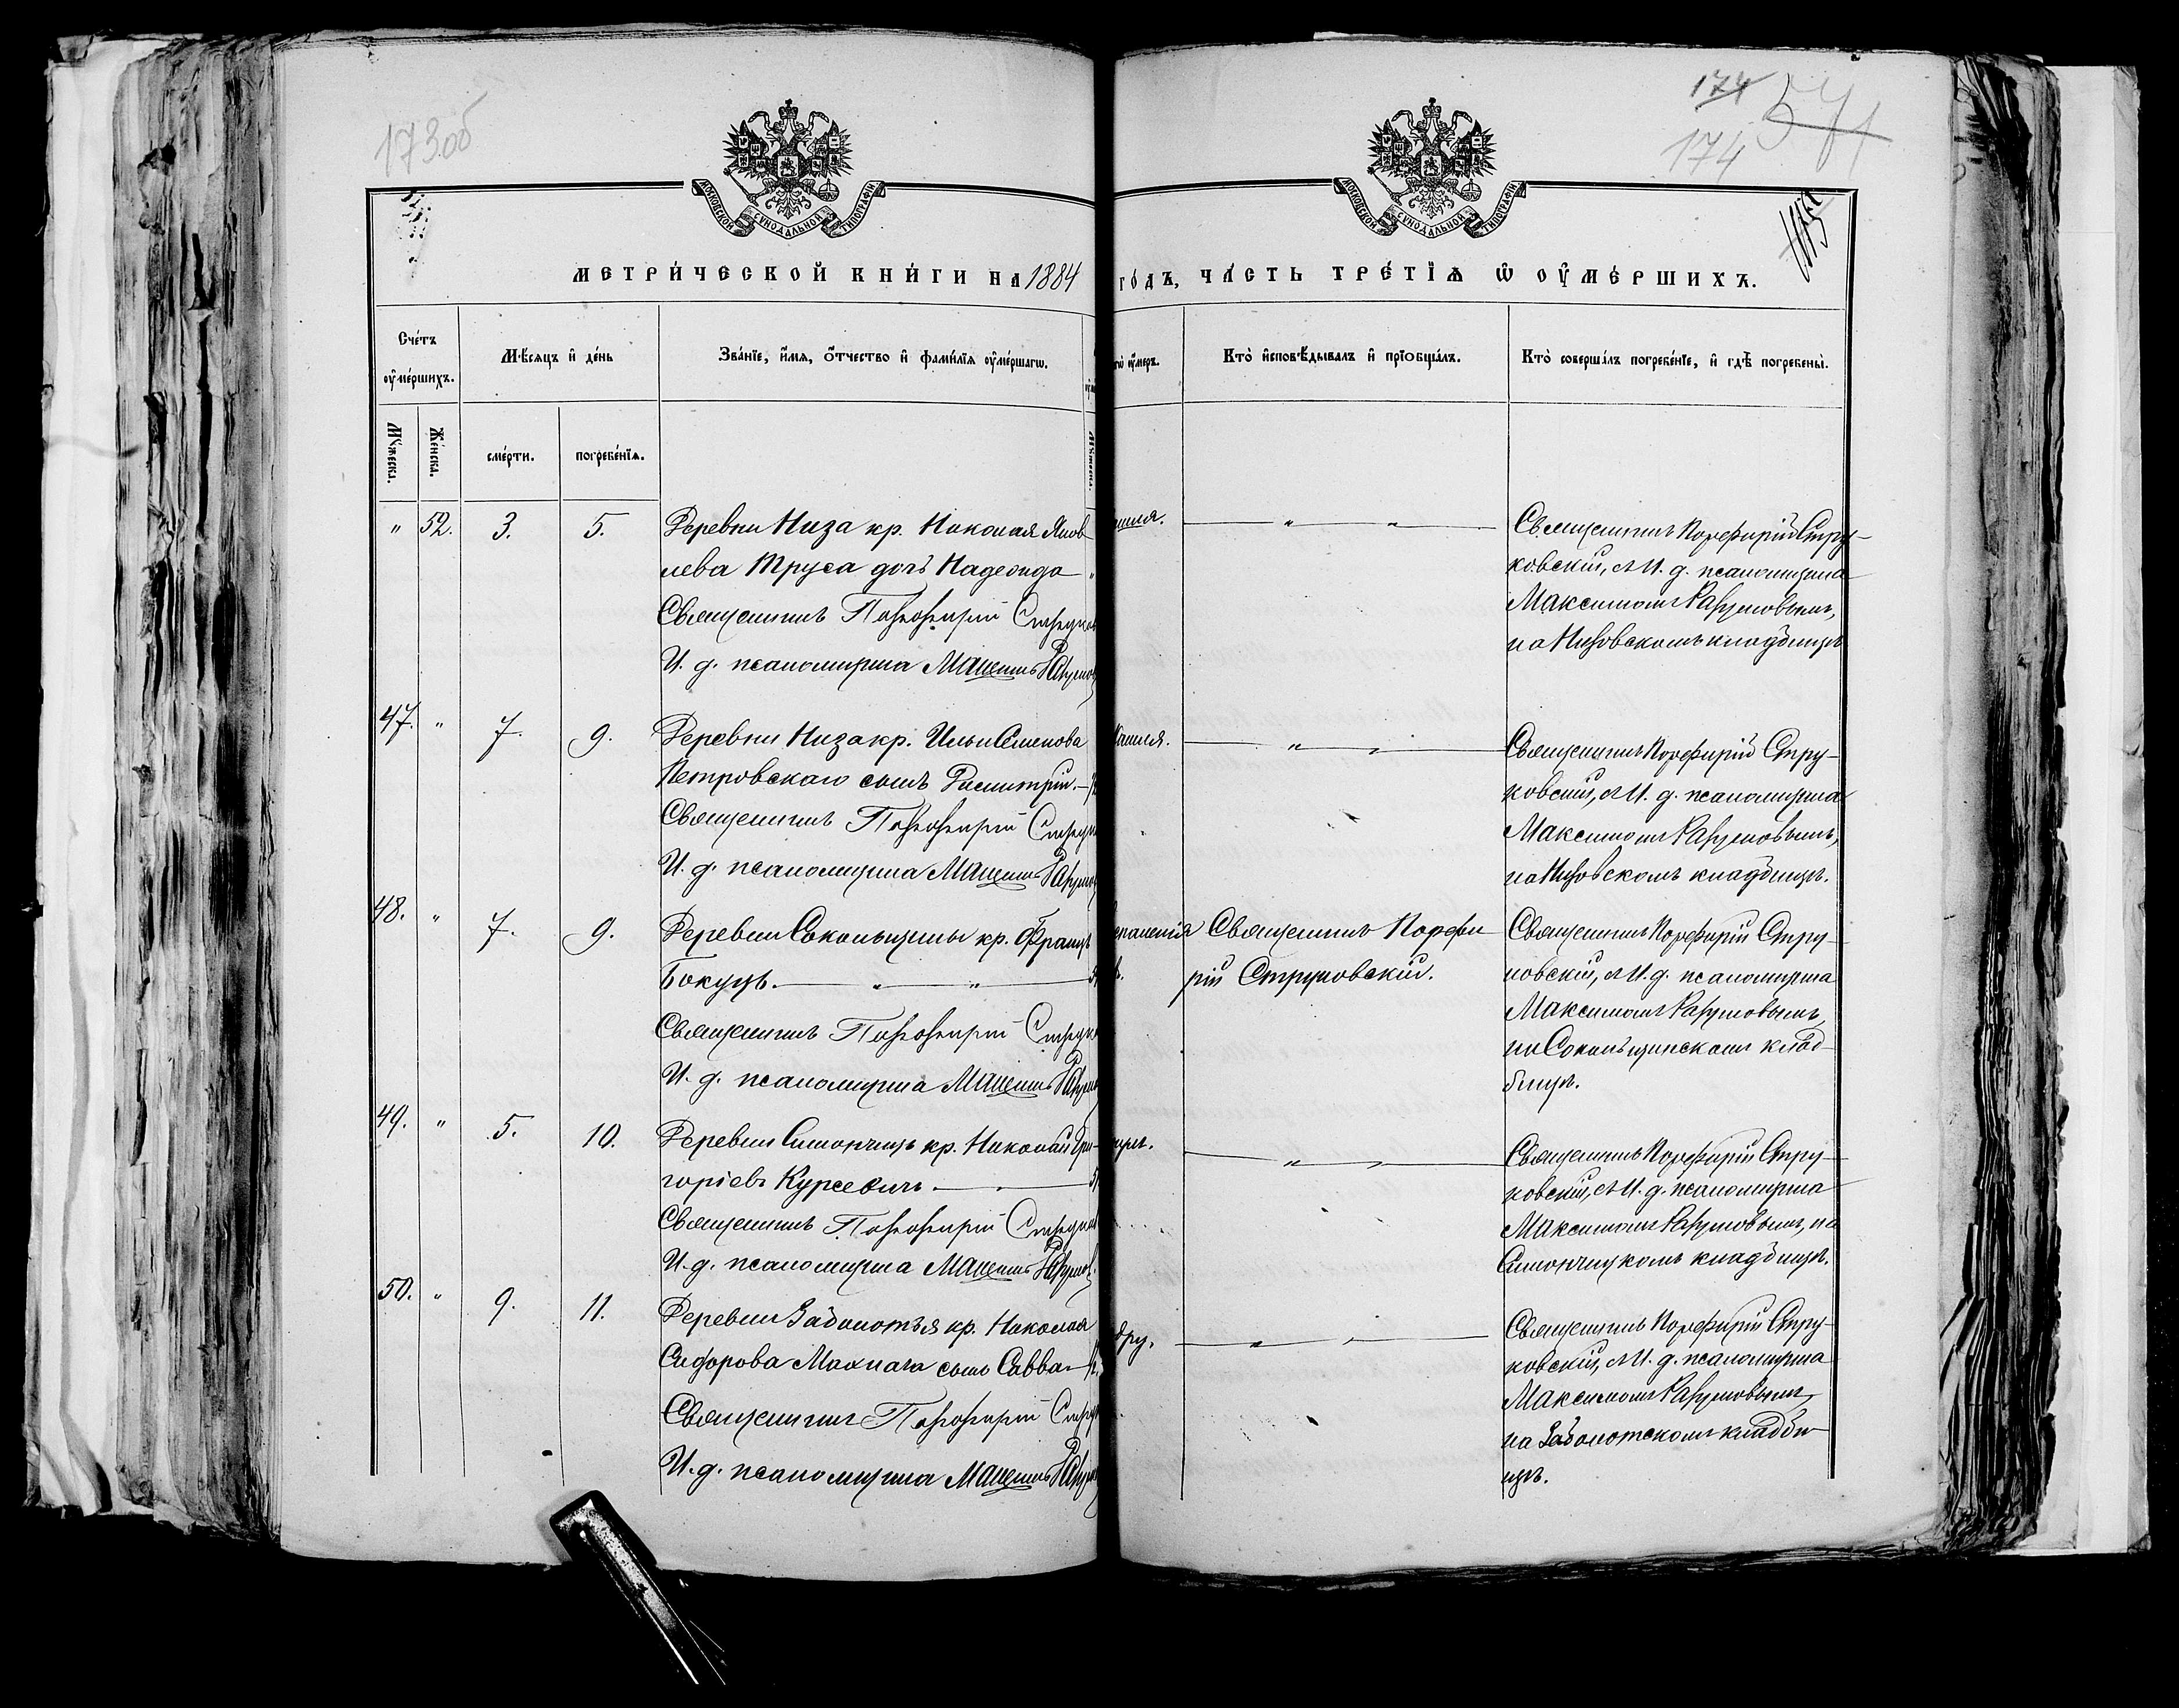 173об
174
174
571
МОСКОВСКОЙ СѴНОДАЛЬНОЙ ТИПОГРАФІИ
МОСКОВСКОЙ СѴНОДАЛЬНОЙ ТИПОГРАФІИ
МЕТРИ́ЧЕСКОЙ КНИ́ГИ НА 1884 ГО́ДЪ, ЧА́СТЬ ТРЕ́ТІѦ Ѡ ОУ҆МЕ́РШИХЪ.
Сче́тъ оу҆ме́ршихъ.
Мꙋ́жеска.
Же́нска.
Мѣ́сяцъ и҆ де́нь
сме́рти.
погребе́нїѧ.
Зва́нїе, и҆́мѧ, ѻ҆́тчество и҆ фами́лїѧ оу҆ме́ршагѡ.
оу҆́меръ.
Кто̀ и҆сповѣ́дывалъ и҆ прїобща́лъ.
Кто̀ соверша́лъ погребе́нїе, и҆ гдѣ̀ погребены̀.
" 52. 3. 5.
Деревни Низа кр. Николая Яков-
лева Труса дочь Надежда
Священникъ Порфирій Струков
И. д. псаломщика Максимъ Разумов
шля. " "
Священникъ Порфирій Стру-
ковскій, съ И. д. псаломщика
Максимомъ Разумовымъ,
на Низовскомъ кладбищѣ
47. " 7. 9.
Деревни Низа кр. Ильи Семенова
Петровскаго сынъ Димитрій.
Священникъ Порфирій Струк
И. д. псаломщика Максимъ Разумов
кашля. " "
Священникъ Порфирій Стру-
ковскій, съ И. д. псаломщика
Максимомъ Разумовымъ,
на Низовскомъ кладбищѣ.
48. " 7. 9.
Деревни Сокольщины кр. Францъ
Бокуць. " "
Священникъ Порфирій Струк
И. д. псаломщика Максимъ Разумов
паленія
Священникъ Порфи
рій Струковскій.
Священникъ Порфирій Стру-
ковскій, съ И. д. псаломщика
Максимомъ Разумовымъ,
на Сокольщинскомъ клад-
бищѣ.
49. " 5. 10.
Деревни Симончицъ кр. Николай Гри-
горіевъ Курсевичъ
Священникъ Порфирій Струков
И. д. псаломщика Максимъ Разумов.
" "
Священникъ Порфирій Стру-
ковскій, съ И. д. псаломщика
Максимомъ Разумовымъ, на
Симончицкомъ кладбищѣ.
50. " 9. 11.
Деревни Заболотья кр. Николая
Сидорова Махнача сынъ Савва
Священникъ Порфирій Струк
И. д. псаломщика Максимъ Разумов
" "
Священникъ Порфирій Стру-
ковскій, съ И. д. псаломщика
Максимомъ Разумовымъ,
на Заболотскомъ кладби-
щѣ.